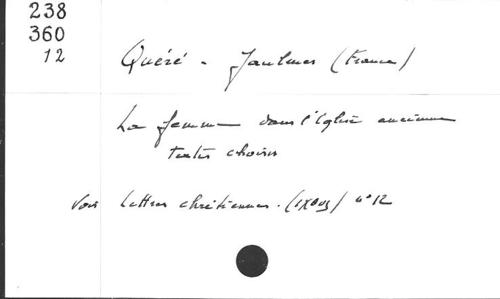 238
360
12
Quéré - Jaulmes (France)
La femme dans l'Eglise ancienne
textes choisis
Voir Lettres chrétiennes. (IXOYS) n° 12